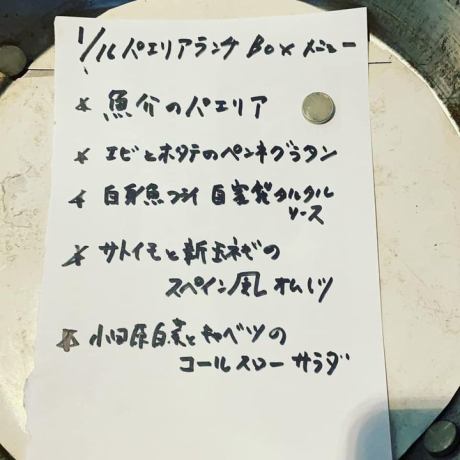 1/16 パエリアランチ BOX メニュー
* 魚介のパエリア
* エビとホタテのペンネグラタン
* 白身魚フライ 自家製タルタル
ソース
* サトイモと新玉ネギの
スペイン風オムレツ
* 小田原白菜とキャベツの
コールスローサラダ